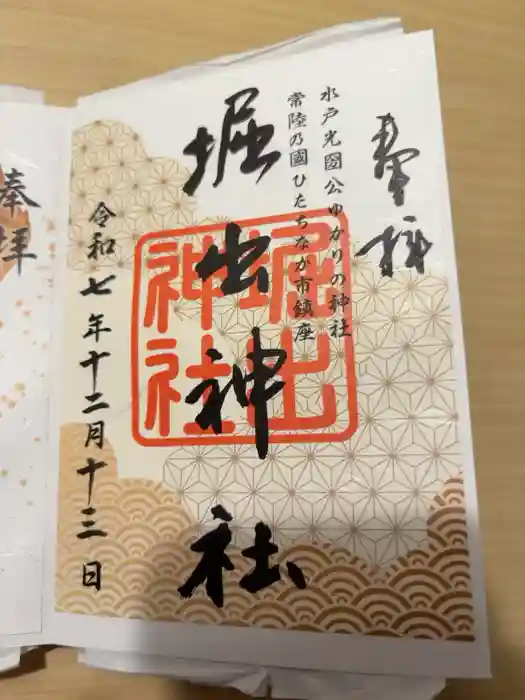 奉拝
水戸光圀公ゆかりの神社
常陸乃國ひたちなか市鎮座
堀出神社
堀出
神社
令和七年十二月十三日
奉拝